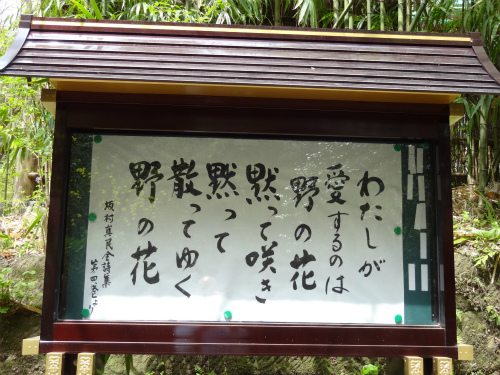 わたしが
愛するのは
野の花
黙って咲き
黙って
散ってゆく
野の花
坂村真民全詩集
第四巻より